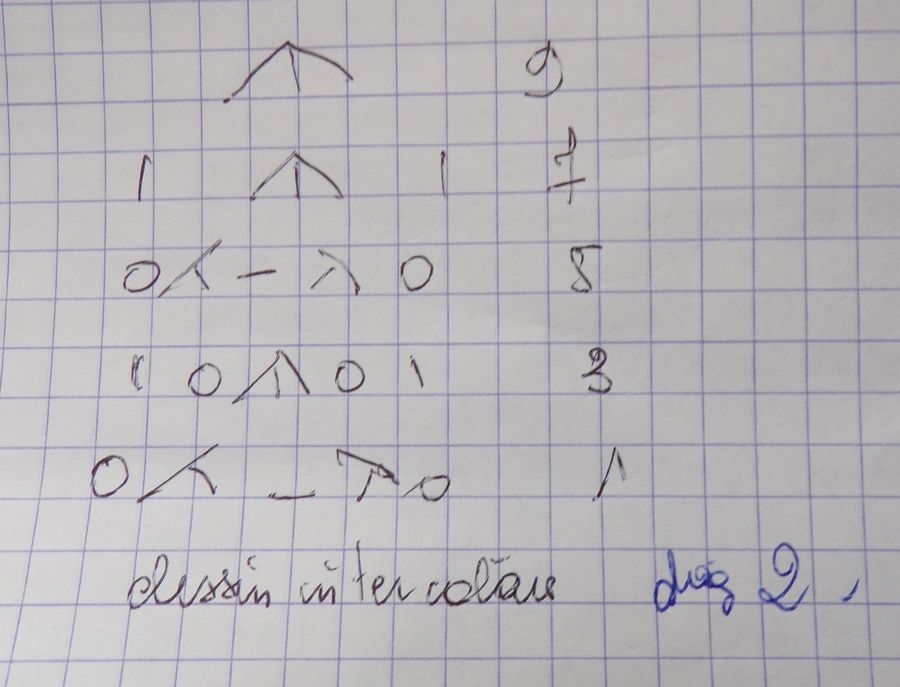 9
1 1 7
0 - 0 5
1 0 0 1 3
0 - 0 1
dessin intercalaire diag 2